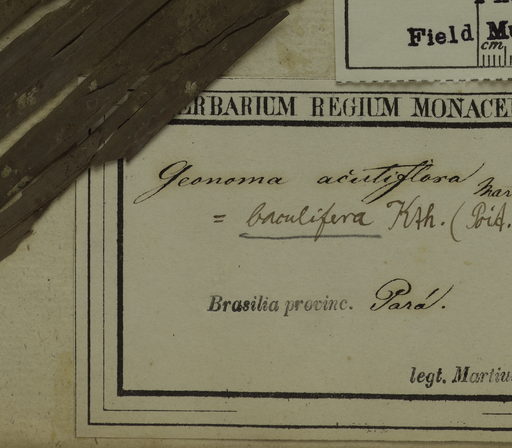 Field
cm
HERBARIUM REGIUM MONACE
Geonoma acutiflora Mar
= baculifera Kth. (Poit.
Brasilia provinc. Pará.
legt. Martiu